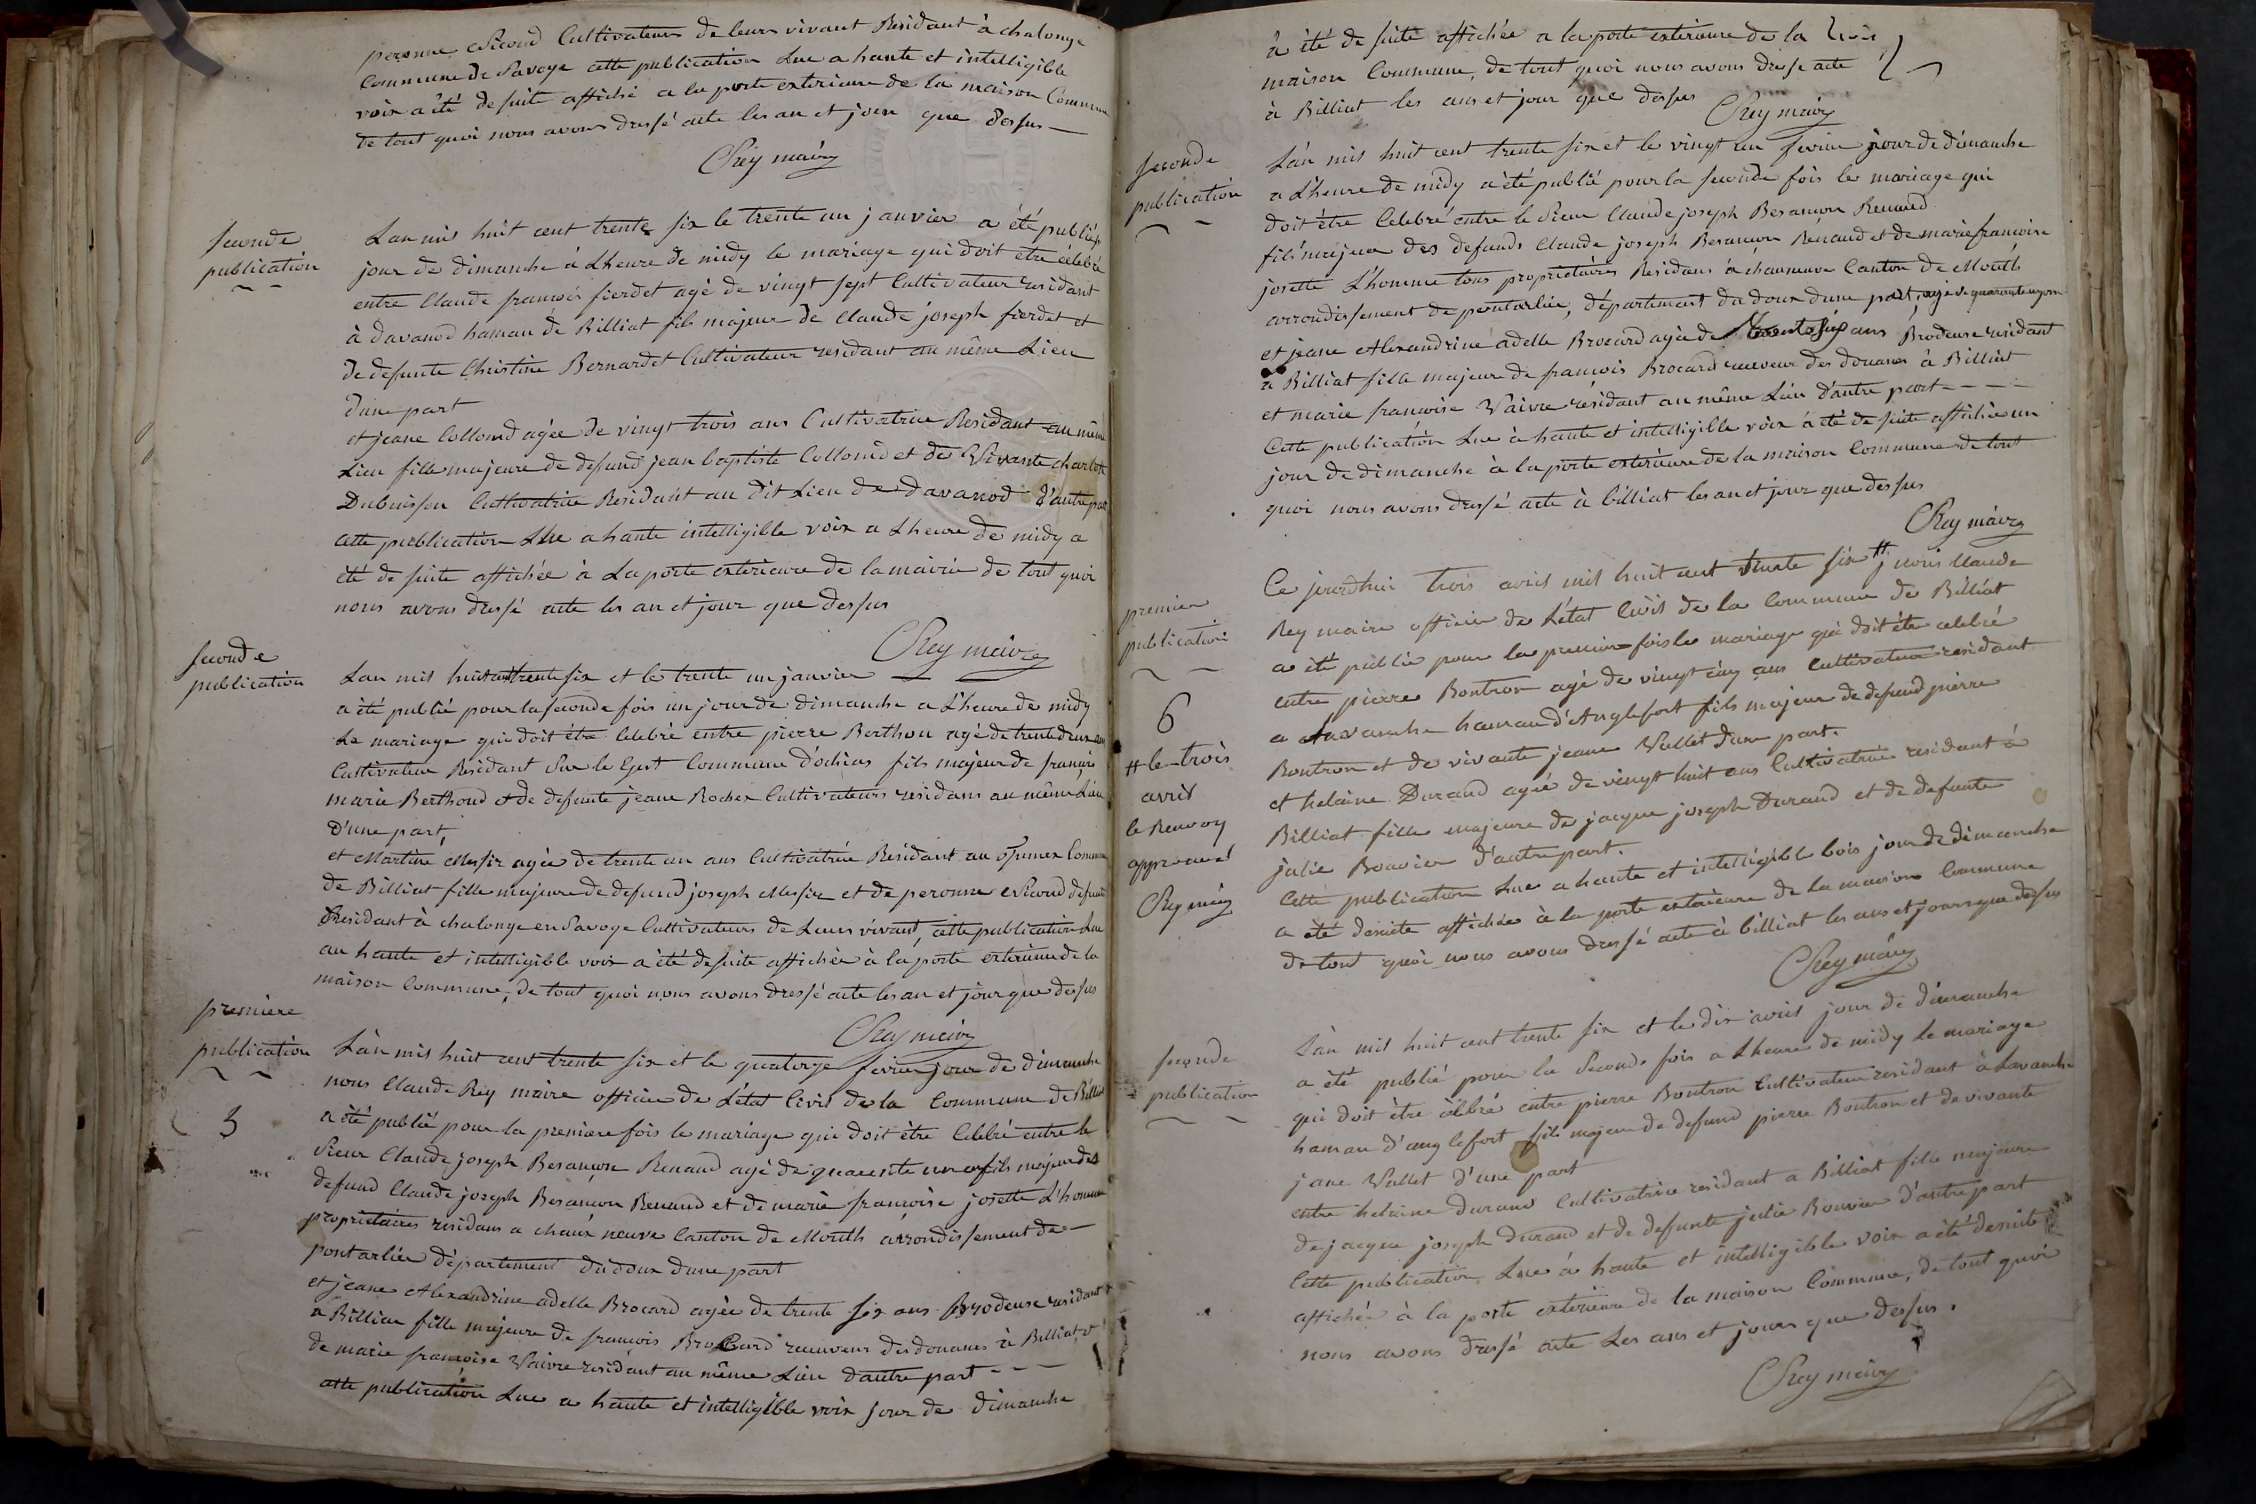 peronne Second Cultivateurs de leurs vivant Residant à chalonge
Commune de Savoye cette publication Lue a haute et intelligible
voix a été de suite affiché a la porte exterieure de la maison Commune
de tout quoi nous avons dressé acte les an et jour que dessus
CRey maire
seconde
publication
Lan mil huit cent trente six le trente un janvier a été publiée
jour de dimanche à Lheure de midy le mariage qui doit être célebré
entre Claude francois fierdet agé de vingt sept Cultivateur residant
à davanod hamau de Billiat fils majeur de Claude joseph fierdet et
de defunte Christine Bernardet Cultivateur residant au même Lieu
dune part
et jeane Collomd agée de vingt trois ans Cultivatrice Residant au même
Lieu fille majeure de defund jean baptiste Collomd et de Vivante charlote
Dubuisson Cultivatrice Residant au dit Lieu de davanod d'autre part
cette publication Lue a haute intelligible voix a Lheure de midy a
été de suite affichée à La porte exterieure de la mairie de tout quoi
nous avons dressé acte les an et jour que dessus
CRey maire
seconde
publication
Lan mil huit cent trente six et le trente un janvier
a été publié pour la seconde fois un jour de dimanche a L'heure de midy
Le mariage qui doit être Celebré entre pierre Berthou agé de trente deux ans
Cultivateur Residant Sur le Gest Commune d'ochias fils majeur de françois
marie Berthoud et de defunte jeane Rochex Cultivateurs residans au même Lieu
d'une part,
et Martine Messir agée de trente un ans Cultivatrice Residant au Commune
de Billiat fille majeure de defund joseph Messir et de peronne Second defunte
Residant à chalonge en Savoye Cultivateurs de Leurs vivant, cette publication Lue
au haute et intelligible voix a été de suite affichée à la porte exterieure de la
maison Commune, de tout quoi nous avons dressé acte les an et jour que dessus
CRey maire
première
publication
3
Làn mil huit cent trente six et le quatorze fevrier jour de dimanche
nous Claude Rey maire officier de L'état Civil de la Commune de Billiat
a été publié pour la premiere fois le mariage qui doit être Celebré entre le
Sieur Claude joseph Besançon Renaud agé de quarente un an fils majeur des
defund Claude joseph Besançon Renaud et de marie françoise josette L'homme
propriétaires residans a chaux neuve Canton de Mouth arrondissement de
pontarlier département du doux dune part
et jeane Alexandrine adelle Brocard agée de trente six ans Brodeuse residant
à Billiat fille majeure de francois Brocard receveurs des douanes à Billiat, et
de marie françoise Vaivre residant au même Lieu dautre part - - -
cette publication Lue a haute et intelligible voix jour de dimanche
à été de suite affichée a la porte exterieure de la
maison Commune, de tout quoi nous avons dressé acte
à Billiat les ans et jour que dessus
CRey maire
seconde
publication
Làn mil huit cent trente six et le vingt un fevrier jour de dimanche
a L'heure de midy a été publié pour la seconde fois le mariage qui
doit être Celebré entre le Sieur Claude joseph Besançon Renaud
fils majeur des defunds Claude joseph Besançon Renaud et de marie francoise
josette L'homme tous propriétaires Residans à chauxneuve Canton de Mouth
arrondissement de pontarlier, département du doux dune part, agé de quarante un an
et jeane Alexandrine adelle Brocard agée de trente six ans Brodeuse residant
a Billiat fille majeure de francois Brocard receveur des douanes à Billiat
et marie francoise Vaivre résidant au même Lieu d'autre part - - -
Cette publication Lue à haute et intelligible voix a été de suite affichée un
jour de dimanche à la porte extérieure de la maison Commune de tout
quoi nous avons dressé acte à billiat les an et jour que dessus
CRey maire
premier
publication
6
# le trois
avril
le Renvoy
approuvé
CRey maire
Ce jourdhui trois avril mil huit cent trente six # nous Claude
Rey maire officier de L'état Civil de la Commune de Billiat
a été publié pour la premiere fois le mariage qui doit être celebré
entre pierre Bontron agé de vingt cinq ans Cultivateur residant
a Lavanche hamau d'Anglefort fils majeur de defund pierre
Bontron et de vivante jeane Vallet dune part.
et helaine Durand agée de vingt huit ans Cultivatrice residant à
Billiat fille majeure de jacque joseph Durand et de defunte
julie Bouvier d'autre part.
Cette publication Lue a haute et intelligible vois jour de dimanche
a été desuite affichée à la porte exterieure de la maison Commune
de tout quoi nous avons dressé acte à billiat les ans et jours que dessus
CRey maire
seconde
publication
Làn mil huit cent trente six et le dix avril jour de dimanche
a été publié pour la Seconde fois a Lheure de midy Le mariage
qui doit être célébré entre pierre Bontron Cultivateur residant à Lavanche
hamau d'anglefort fils majeur de defund pierre Bontron et de vivante
jeane Vallet d'une part
entre helaine durand Cultivatrice residant a Billiat fille majeure
de jacque joseph durand et de defunte julie Bouvier d'autre part
Cette publication Lue à haute et intelligible voix a été desuite
affichée à la porte exterieure de la maison Commune, de tout quoi
nous avons dressé acte Les ans et jours que dessus.
CRey maire